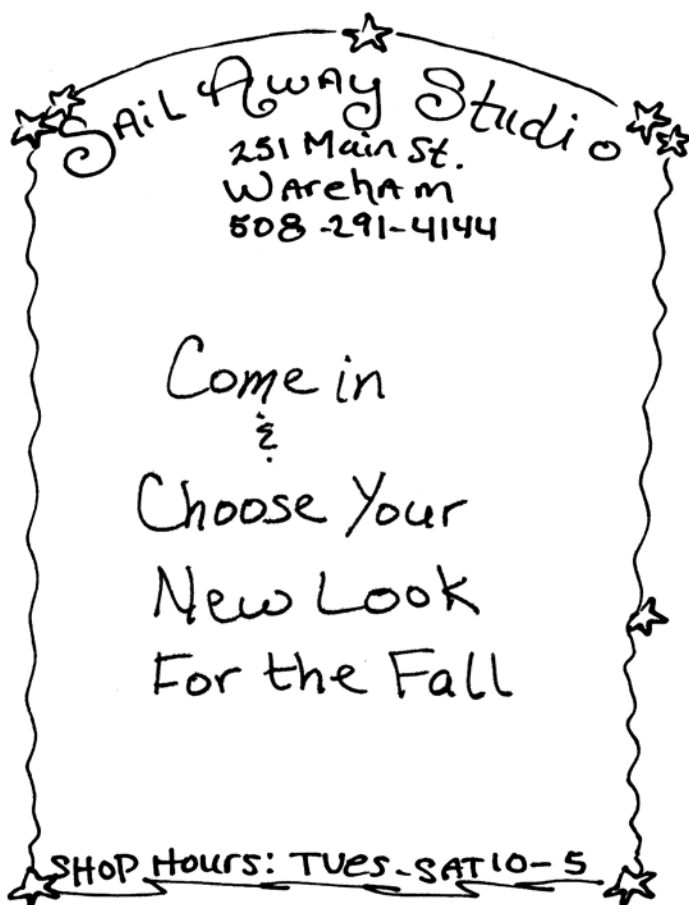 Sail Away Studio
251 Main St.
Wareham
508-291-4144
Come in
&
Choose Your
New Look
For the Fall
SHOP HOURS: TUES-SAT 10-5